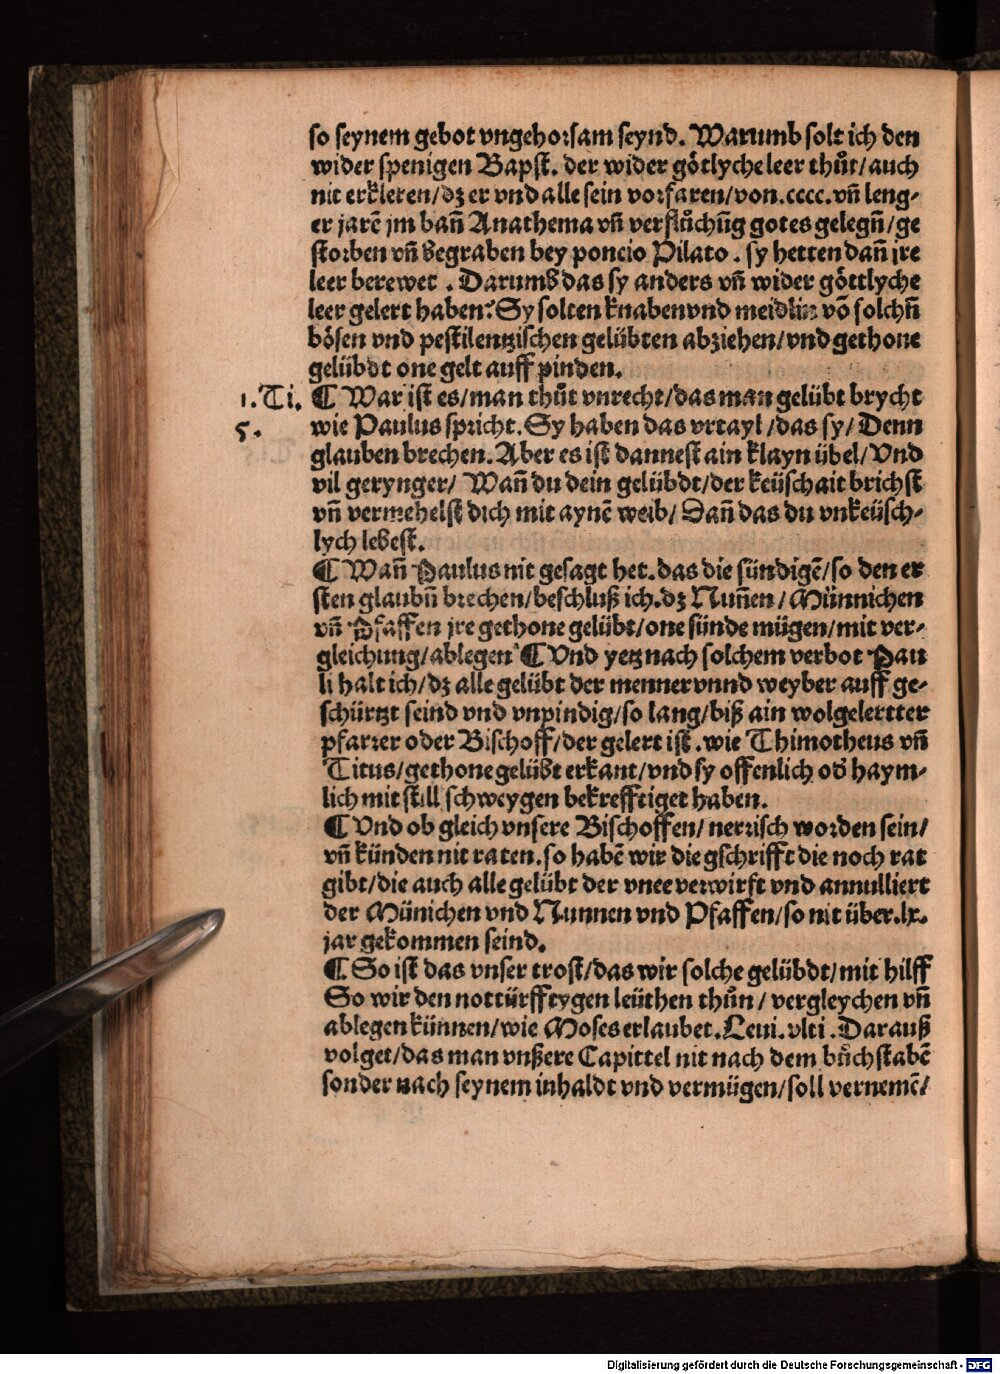 so seynem gebot vngehorsam seynd. Warumb solt ich den
wider spenigen Bapst. der wider gőtlyche leer thůt/auch
nit erkleren/dz er vnd alle sein vorfaren/von.cccc.vn̄ leng⸗
er jarē jm ban̄ Anathema vn̄ verflůchūg gotes gelegn̄/ge
storben vn̄ begraben bey poncio Pilato . sy hetten dan̄ jre
leer berewet . Darumb das sy anders vn̄ wider gőttlyche
leer gelert haben? Sy solten knaben vnd meidlin vō solchn̄
bősen vnd pestilentzischen gelübten abziehen/vnd gethone
gelübdt one gelt auff pinden.
1.Ti. ¶ War ist es/man thůt vnrecht/das man gelübt brycht
5. wie Paulus spricht. Sy haben das vrtayl/das sy/Denn
glauben brechen. Aber es ist dannest ain klayn übel/Vnd
vil gerynger/ Wan̄ du dein gelübdt/der keüschait brichst
vn̄ vermehelst dich mit aynē weib/ Dan̄ das du vnkeüsch⸗
lych lebest.
¶ Wan̄ Paulus nit gesagt het. das die sündigē/so den er
sten glaubn̄ brechen/beschluß ich. dz Nun̄en / Münnichen
vn̄ Pfaffen jre gethone gelübt/one sünde mügen/mit ver⸗
gleichung/ablegen ¶ Vnd yetz nach solchem verbot Pau
li halt ich/dz alle gelübt der menner vnnd weyber auff ge⸗
schürtzt seind vnd vnpindig/so lang/biß ain wolgelertter
pfarrer oder Bischoff/der gelert ist .wie Thimotheus vn̄
Titus/gethone gelübt erkant/vnd sy offenlich od̕ haym⸗
lich mit still schweygen bekrefftiget haben.
¶ Vnd ob gleich vnsere Bischoffen/ nerrisch worden sein/
vn̄ künden nit raten. so habē wir die gschrifft die noch rat
gibt/die auch alle gelübt der vnee verwirft vnd annulliert
der Münichen vnd Nunnen vnd Pfaffen/so nit über.lx.
jar gekommen seind.
¶ So ist das vnser trost/das wir solche gelübdt/mit hilff
So wir den nottürfftygen leüthen thůn/ vergleychen vn̄
ablegen künnen/wie Moses erlaubet. Leui. vlti . Darauß
volget/das man vnßere Capittel nit nach dem bůchstabē
sonder nach seynem inhaldt vnd vermügen/soll vernemē/
Digitalisierung gefördert durch die Deutsche Forschungsgemeinschaft - DFG